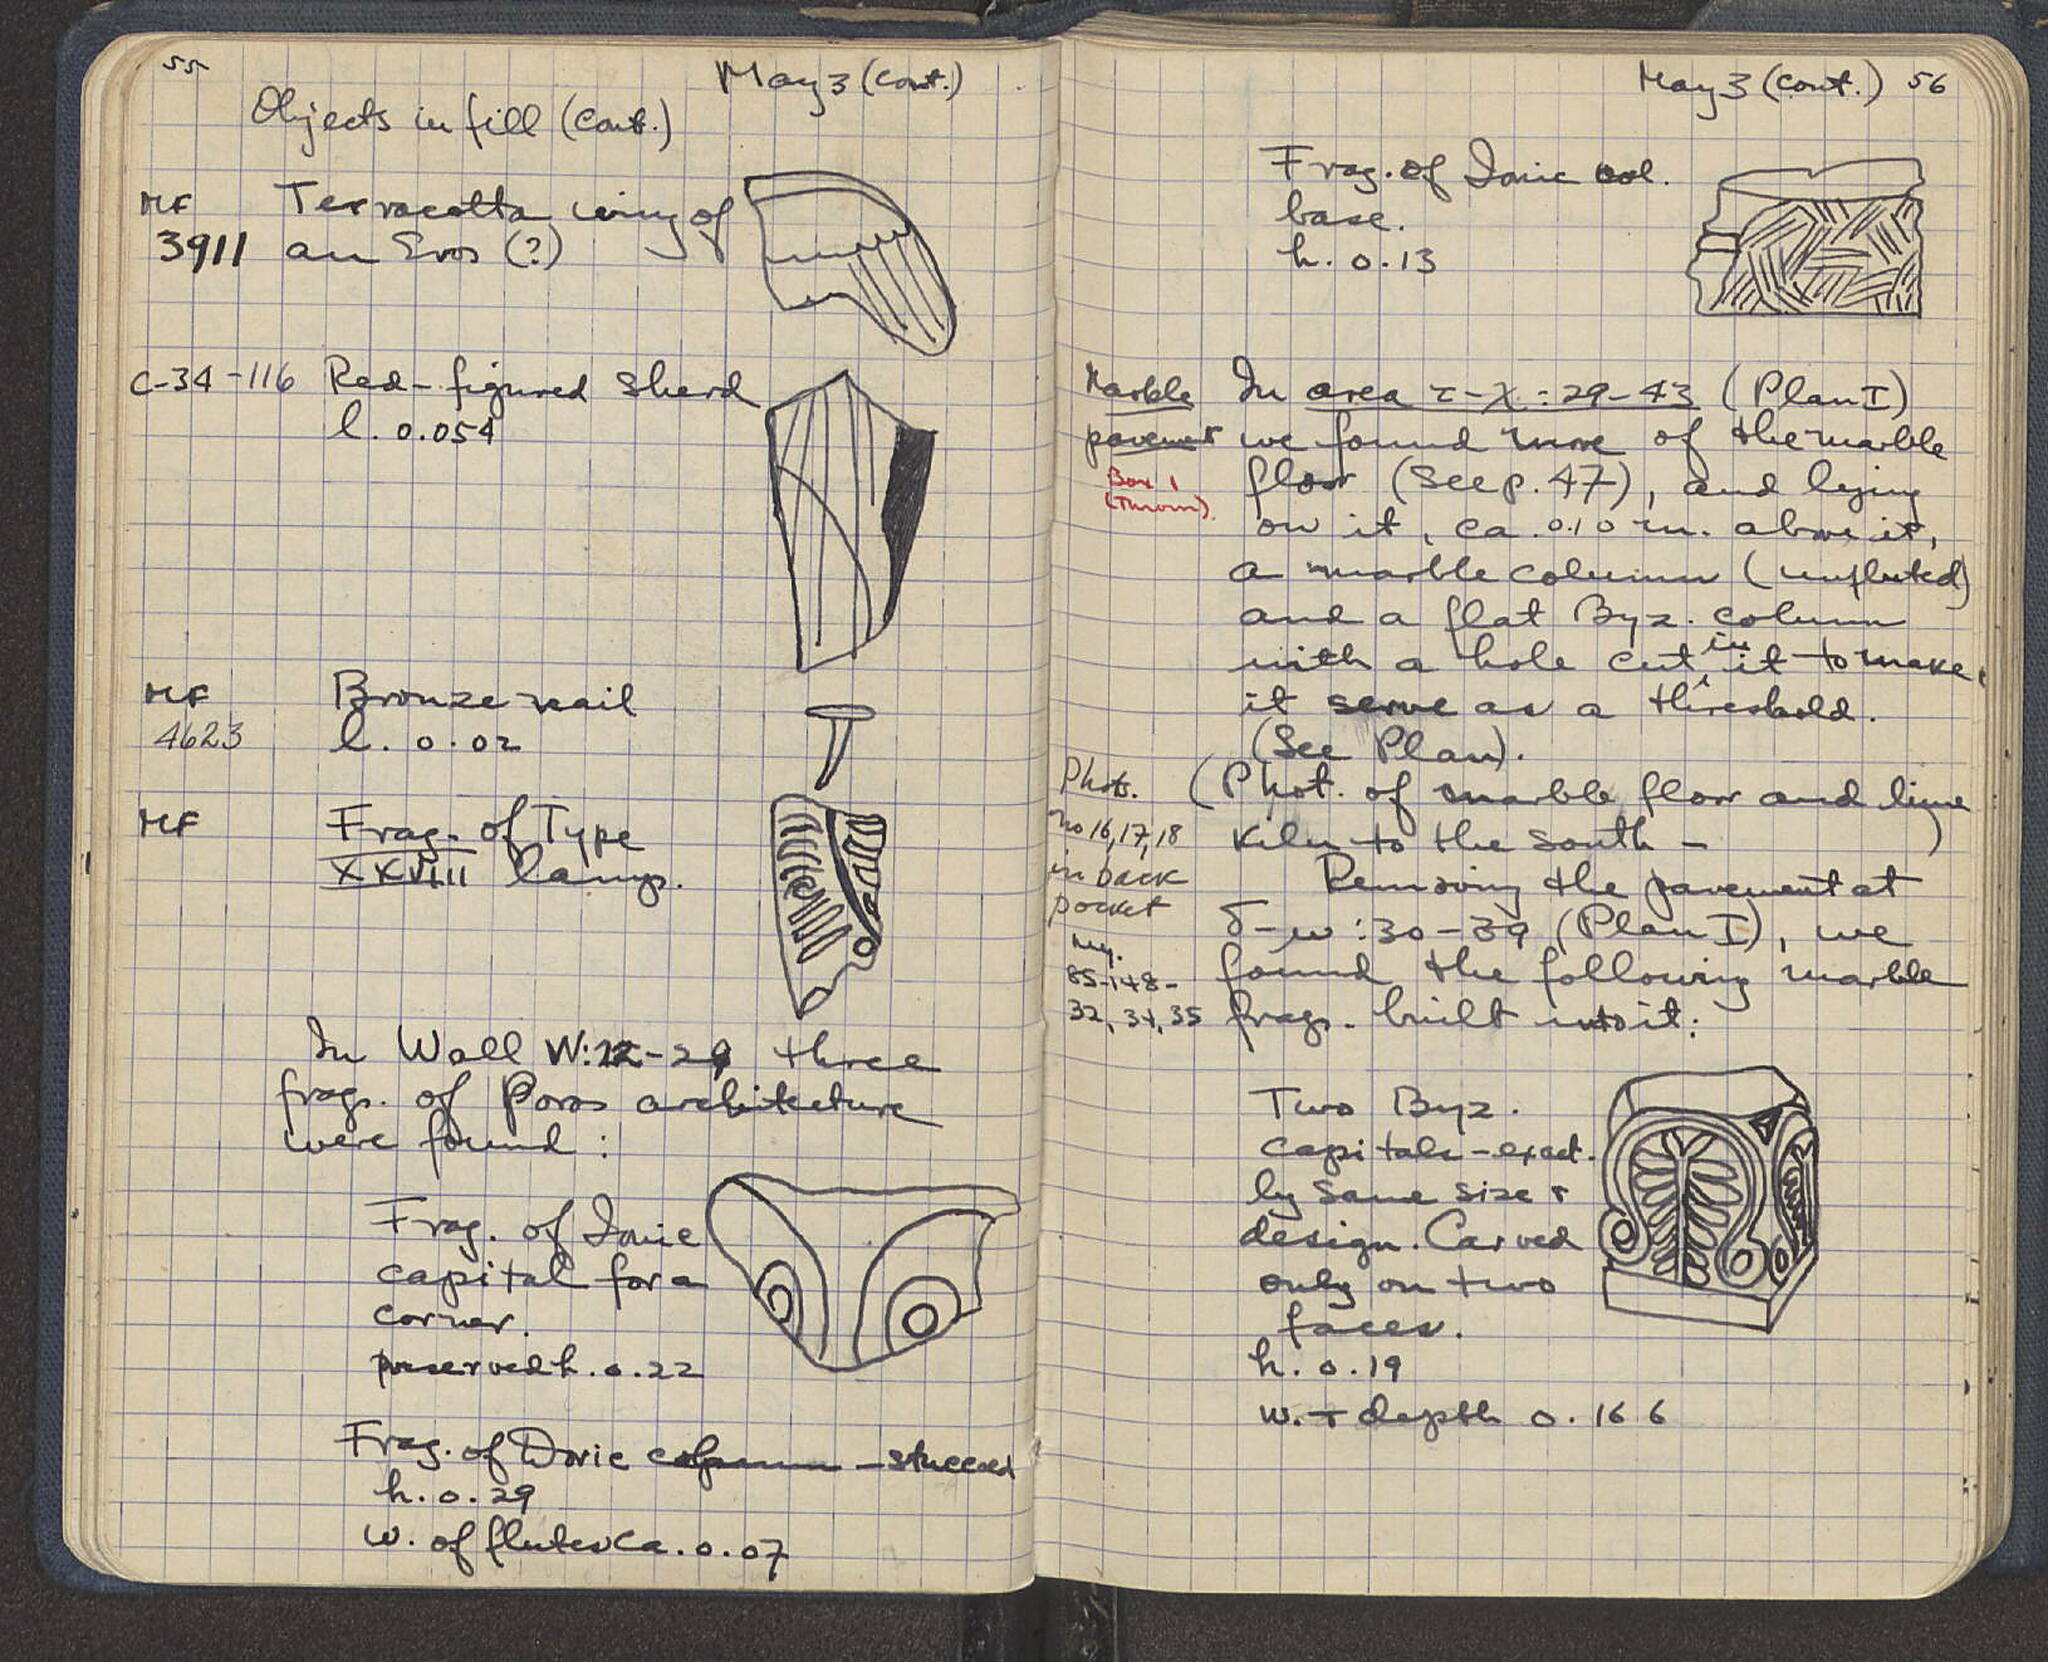 55
May 3 (cont.)
Objects in fill (cont.)
MF Terracotta wing of
3911 an Eros (?)
C-34-116 Red-figured sherd
l. 0.054
MF Bronze nail
4623 l. 0.02
MF Frag. of Type
XXVIII lamp.
In Wall W: -29 three
frags. of Poros architecture
were found:
Frag. of Ionic
capital for a
corner.
preserved h. 0.22
Frag. of Doric column - stuccoed
h. 0.29
w. of flutes ca. 0.07
May 3 (cont.) 56
Frag. of Ionic col.
base.
h. 0.13
Marble
pavement
Box 1
(Thrown).
In area τ-χ:29-43 (Plan I)
we found more of the marble
floor (See p. 47), and lying
on it, ca. 0.10 m. above it,
a marble column (unfluted)
and a flat Byz. column
with a hole cut in it to make
it serve as a threshold.
(See Plan).
Phots.
no 16, 17, 18
in back
pocket
neg.
85-148-
32, 34, 35
(Phot. of marble floor and lime
kiln to the south - )
Removing the pavement at
-ω:30-39 (Plan I), we
found the following marble
frags. built into it:
Two Byz.
capitals - exact-
ly same size +
design. Carved
only on two
faces.
h. 0.19
w. + depth 0.166